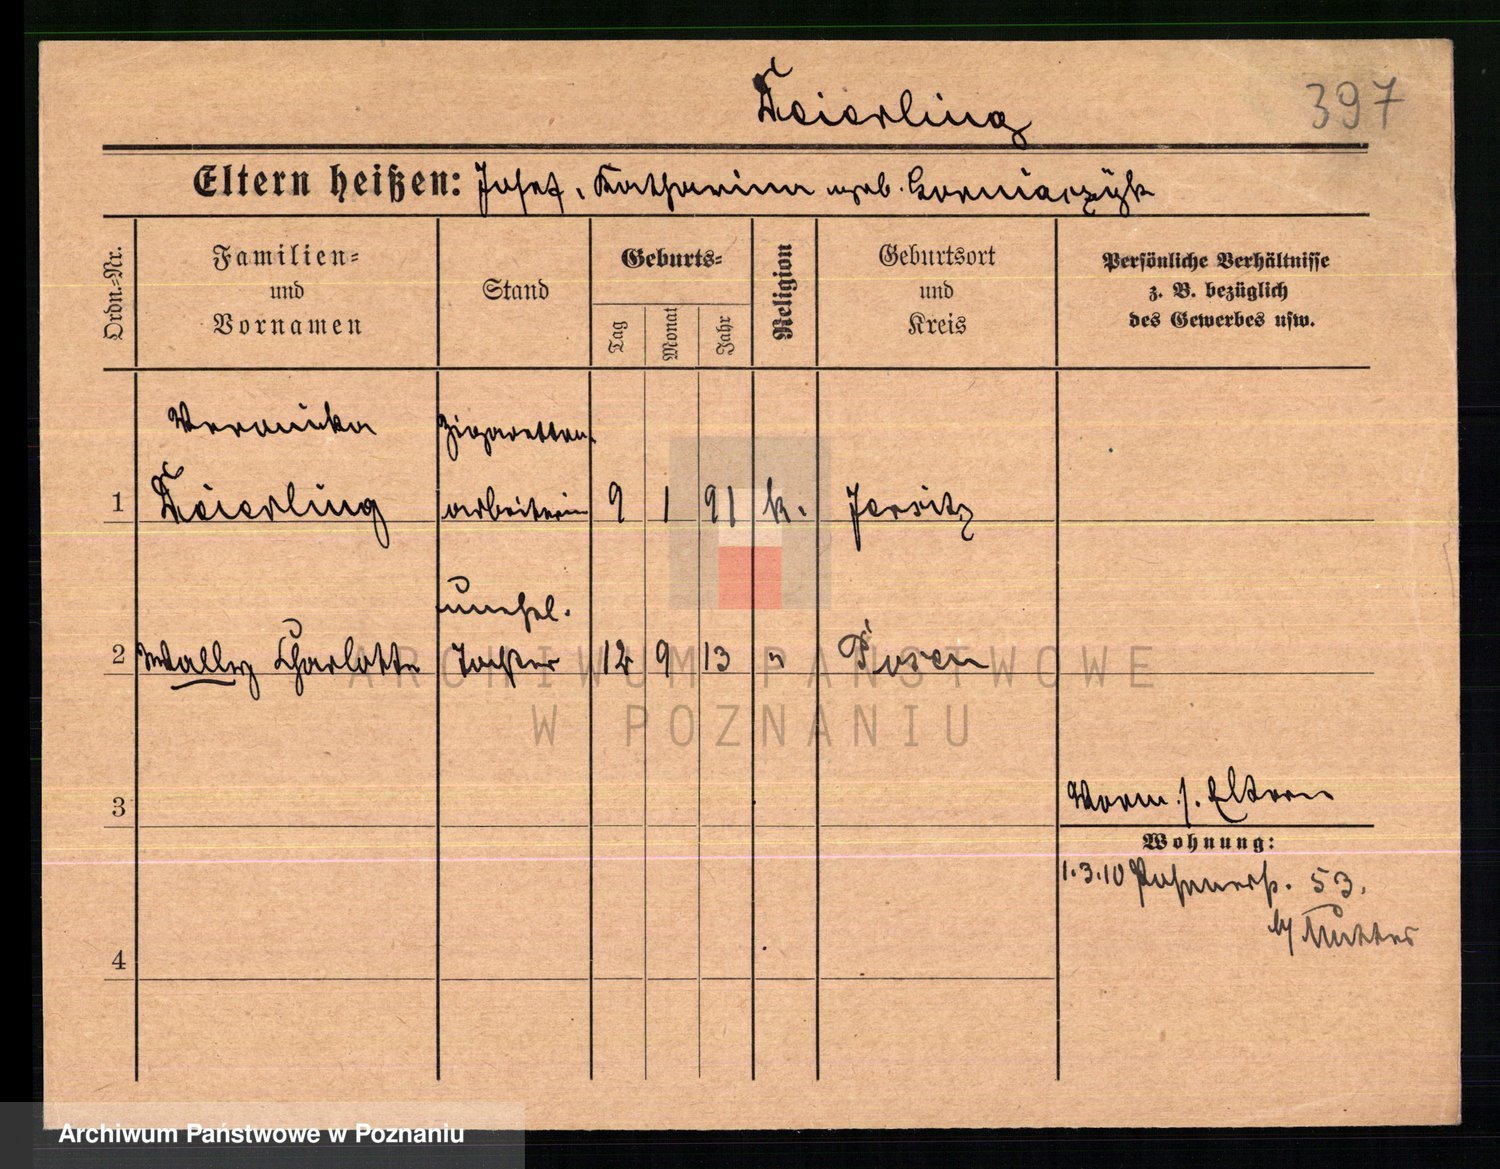 Feierling
397
Eltern heißen: Josef, Katharina geb.
Ordn.-Nr.
Familien=
und
Vornamen
Stand
Geburts=
Tag
Monat
Jahr
Religion
Geburtsort
und
Kreis
Persönliche Verhältnisse
z. B. bezüglich
des Gewerbes usw.
Veronika Zigaretten-
1 Feierling arbeiterin 9 1 91 k. Jersitz
unehel.
2 Wally Charlotte Tochter 12 9 13 " Posen
3
Vorm. s. Eltern
Wohnung:
1.3.10 Posenerstr. 53.
b/ Mutter
4
ARCHIWUM PAŃSTWOWE
W POZNANIU
Archiwum Państwowe w Poznaniu